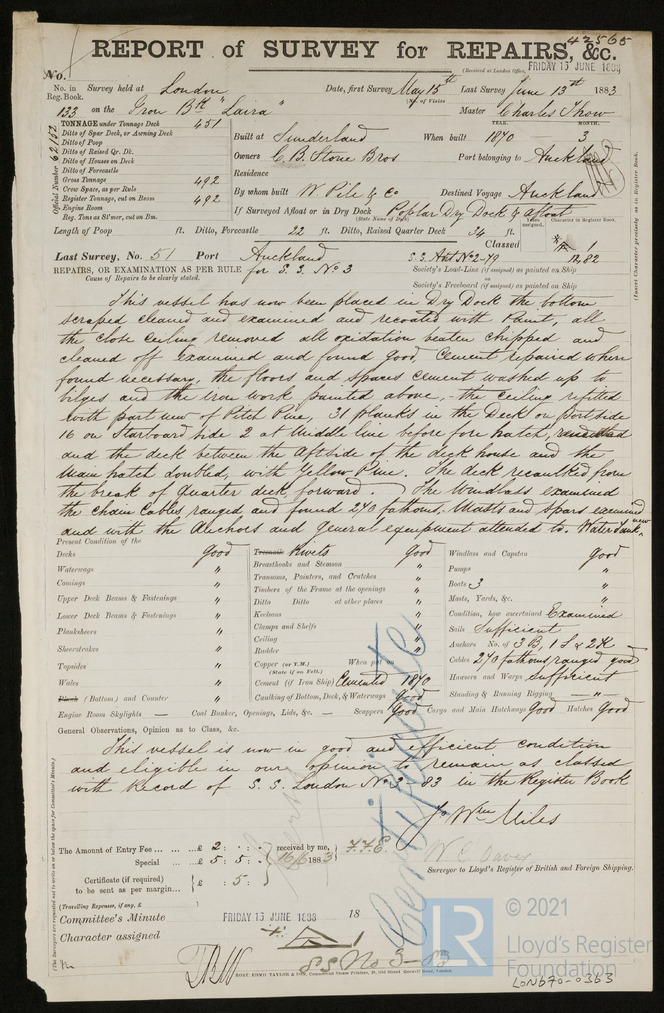 42565
REPORT of SURVEY for REPAIRS, &c.
(Received at London Office, FRIDAY 15 JUNE 1883
No.
No. in Reg. Book. Survey held at London Date, first Survey May 15th Last Survey June 13th 1883
(No. of Visits
133 on the Iron Bk "Laira" Master Charles Thow
TONNAGE under Tonnage Deck 451
Ditto of Spar Deck, or Awning Deck
Ditto of Poop
Ditto of Raised Qr. Dk.
Ditto of Houses on Deck
Ditto of Forecastle
Gross Tonnage 492
Crew Space, as per Rule
Register Tonnage, cut on Beam 492
Engine Room
Reg. Tons as St'mer, cut on Bm.
Official Number 62152
YEAR. MONTH.
Built at Sunderland When built 1870 3
Owners C. B. Stone Bros Port belonging to Auckland
Residence
By whom built W. Pile & Co Destined Voyage Auckland
If Surveyed Afloat or in Dry Dock Poplar Dry Dock & afloat
(State Name of Dock)
Years assigned. Character in Register Book.
Length of Poop ft. Ditto, Forecastle 22 ft. Ditto, Raised Quarter Deck 34 ft.
Classed A 1
12,82
(Insert Character precisely as in Register Book.
Last Survey, No. 51 Port Auckland
REPAIRS, OR EXAMINATION AS PER RULE for S. S. No 3
Cause of Repairs to be clearly stated.
Society's Load-Line (if assigned) as painted on Ship
Society's Freeboard (if assigned) as painted on Ship
This vessel has now been placed in Dry Dock the bottom
scraped cleaned and examined and recoated with Paint, all
the close Ceiling removed all oxidation beaten chipped and
cleaned off examined and found good, Cement repaired where
found necessary, the floors and spaces cement washed up to
bilges and the iron work painted above, the ceiling refitted
with part new of Pitch Pine, 31 planks in the Deck on port side
16 on Starboard side 2 at Middle line before fore hatch,
and the deck between the Aftside of the deck house and the
Main hatch doubled, with Yellow Pine. The deck recaulked from
the break of Quarter deck forward. The Windlass examined
the Chain Cables ranged and found 270 fathoms. Masts and Spars examined
and with the Anchors and general equipment attended to. Water Tank new
Present Condition of the
Decks Good
Waterways "
Comings "
Upper Deck Beams & Fastenings "
Lower Deck Beams & Fastenings "
Planksheers "
Sheerstrakes "
Topsides "
Wales "
Plank (Bottom) and Counter "
Engine Room Skylights — Coal Bunker, Openings, Lids, &c. — Scuppers Good Cargo and Main Hatchways Good Hatches Good
Treenails Rivets Good
Breasthooks and Stemson "
Transoms, Pointers, and Crutches "
Timbers of the Frame at the openings "
Ditto Ditto at other places "
Keelsons "
Clamps and Shelfs "
Ceiling "
Rudder "
Copper (or Y.M.) When put on
(State if on Felt.)
Cement (if Iron Ship) Cemented 1870
Caulking of Bottom, Deck, & Waterways Good
Windlass and Capstan Good
Pumps "
Boats 3 "
Masts, Yards, &c. "
Condition, how ascertained Examined
Sails Sufficient
Anchors No. of 3 B, 1 S & 2 K
Cables 270 fathoms ranged good
Hawsers and Warps sufficient
Standing & Running Rigging — " —
General Observations, Opinion as to Class, &c.
This vessel is now in good and efficient condition
and eligible in our opinion to remain as classed
with Record of S. S. London No 3 - 83 in the Register Book
Jo Wm Miles
Certificate
The Amount of Entry Fee ... ... £ 2 : - : -
Special ... £ 5 : 5 : -
received by me, 16/6 1883
Certificate (if required) to be sent as per margin... £ : 5 :
W C Davey
Surveyor to Lloyd's Register of British and Foreign Shipping.
(Travelling Expenses, if any, £
Committee's Minute FRIDAY 15 JUNE 1883 18
Character assigned A 1
SS No 3 - 83
(The Surveyors are requested not to write on or below the space for Committee's Minute.)
LR © 2021
Lloyd's Register
Foundation
LON670-0363